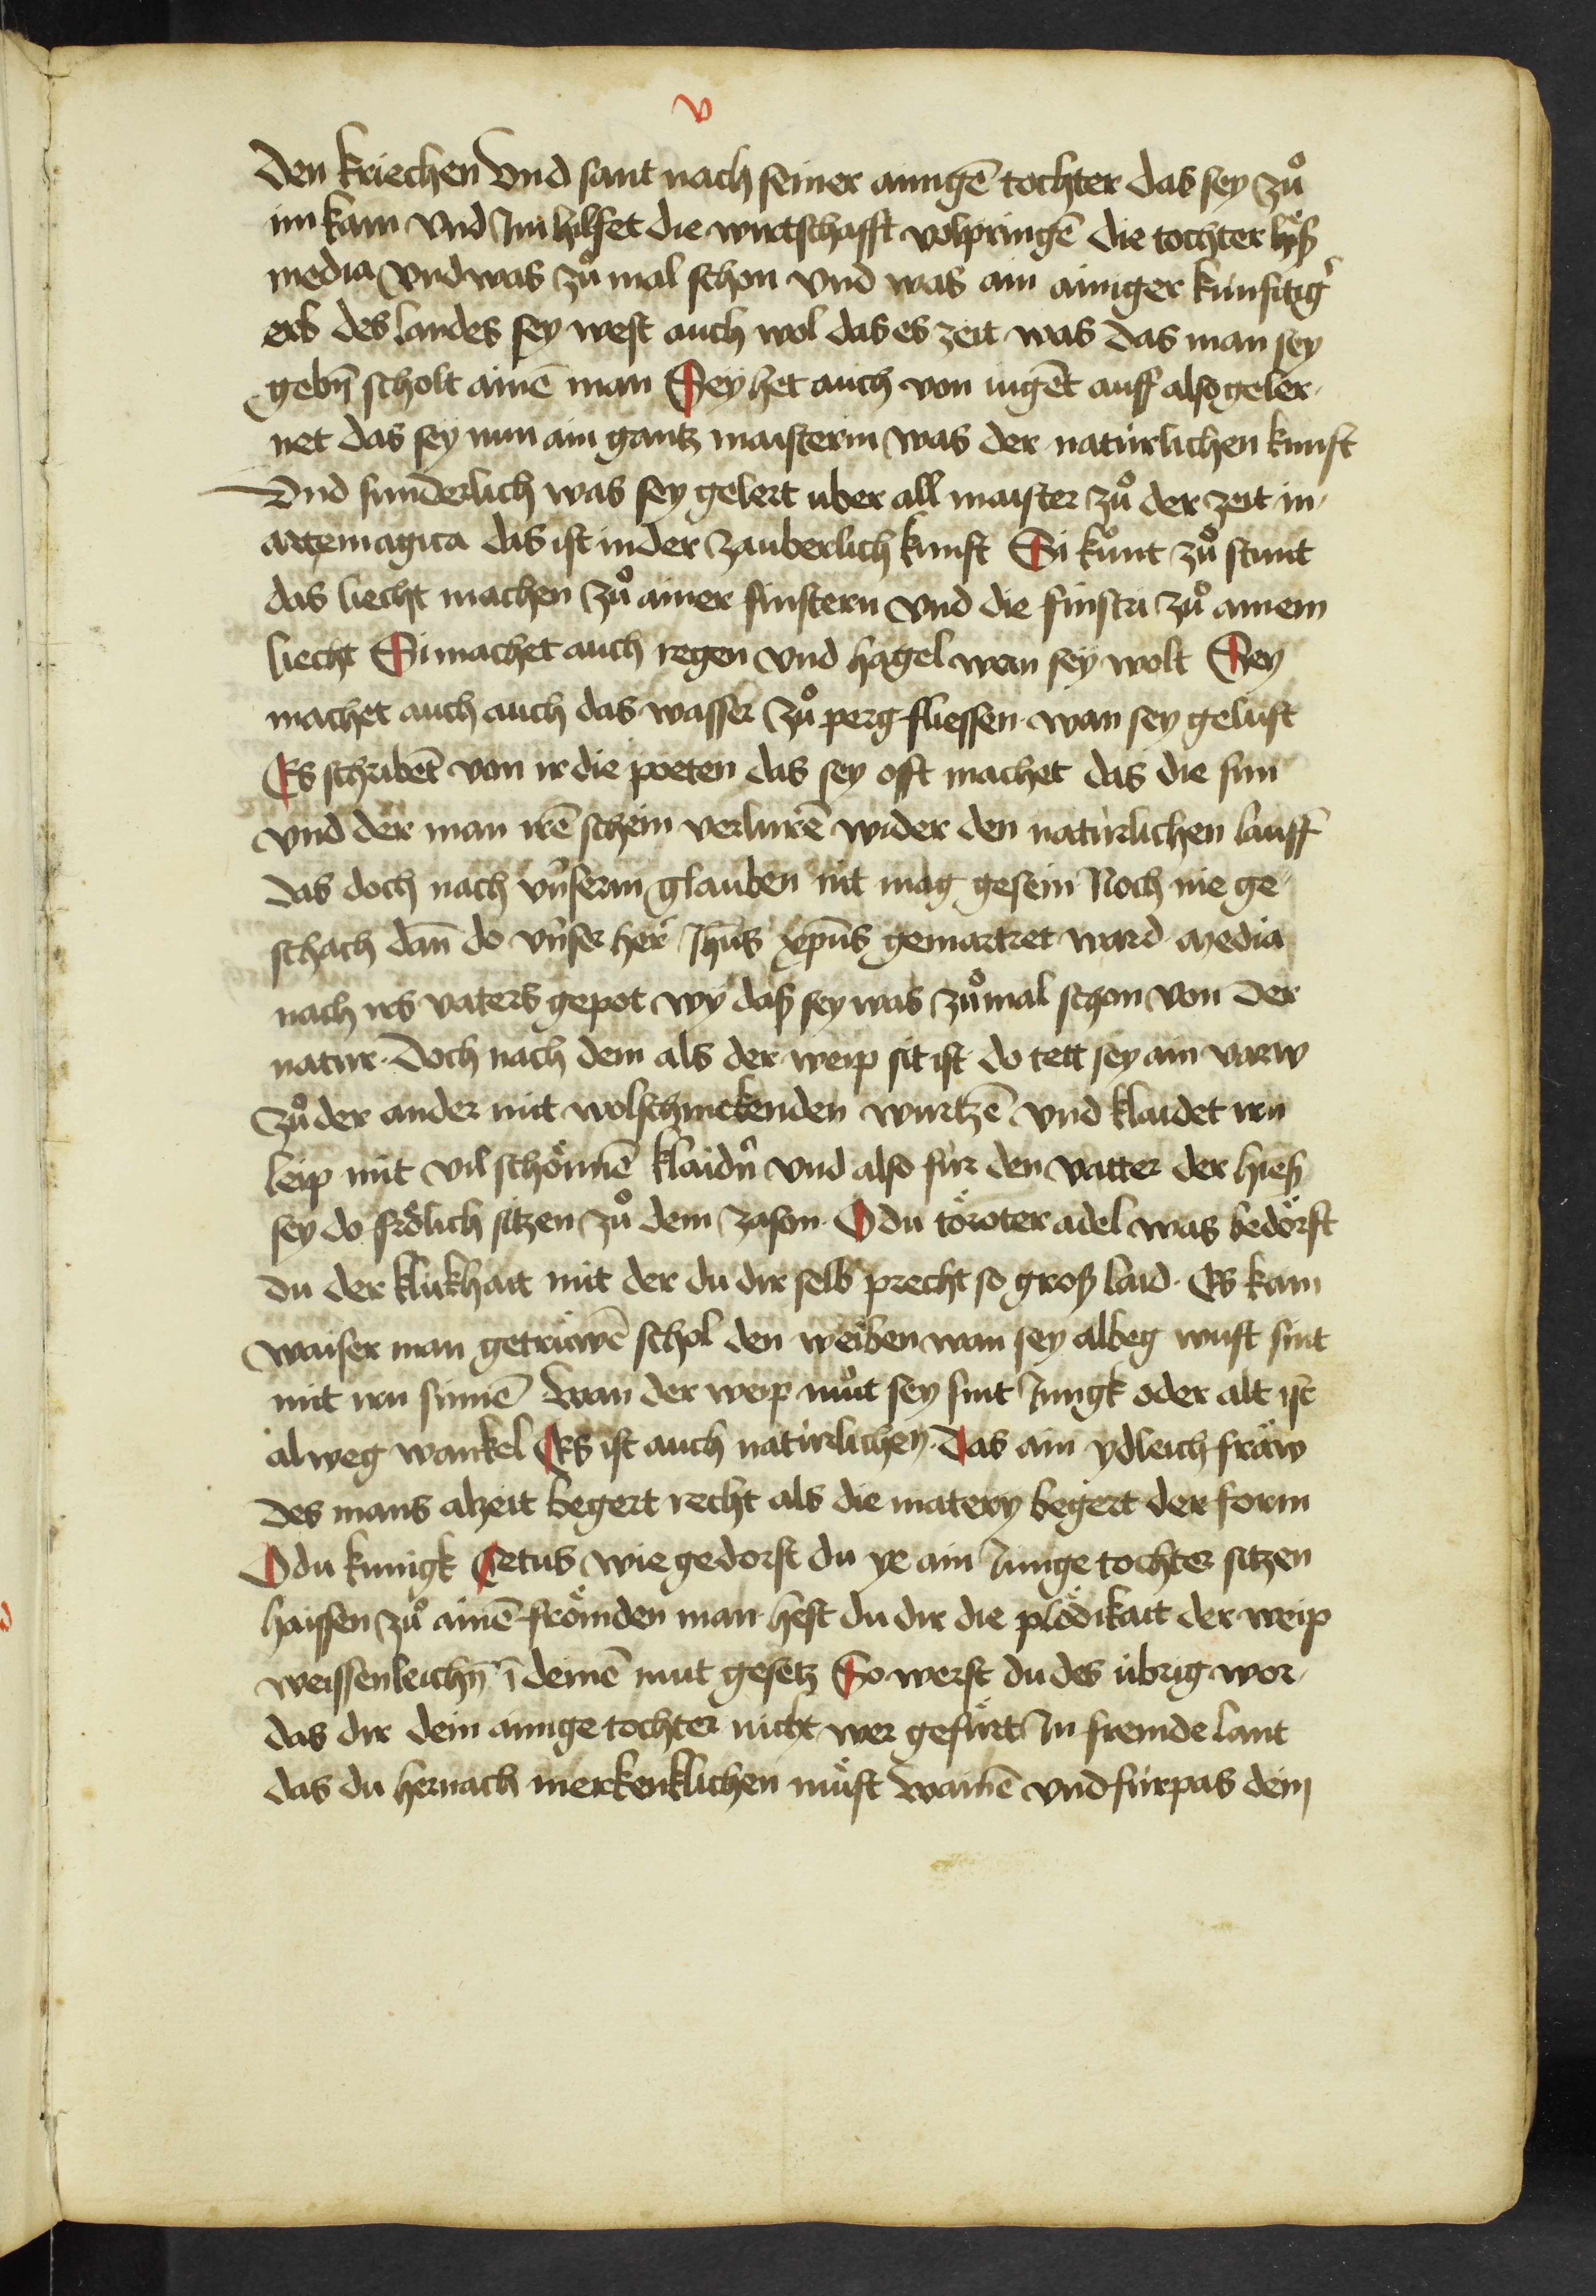 v
den kriechen Vnd sant nach seiner ainigē tochter das sey zů
im kam vnd Im hilfet die wirtschafft volpringē die tochter hÿß
media vnd was zů mal schon vnd was ain ainiger künftig̕
erb des landes sey west auch wol das es zeit was das man sey
gebn̄ scholt ainē man Seÿ het auch von iugēt auff also geler-
net das sey nun ain gantz maisterin was der natürlichen kunst
Vnd sunderlich was sey gelert uber all maister zů der zeit in
arte magica das ist in der zauberlich kunst Si kunt zů stunt
das liecht machen zů ainer finstern vnd die finstri zů ainem
liecht Si machet auch regen vnd hagel wan seÿ wolt Sey
machet auch auch das wasser zů perg fliessen wan sey gelust
Es schribēt von ir die poeten das sey offt machet das die sun
vnd der man irē schein verlurē wider den natürlichen lauff
das doch nach vnserm glauben nit mag gesein Noch nie ge-
schach dan̄ do vnser her Jhūs xpūs gemartret ward media
nach irs vaters gepot wÿ daß sey was zůmal schon von der
natur doch nach dem als der weip sit ist do tett sey ain varw
zů der ander mit wolschmckenden wurtzē vnd klaidet irn
leip mit vil schönnē klaidn̄ vnd also für den vatter der hieß
sey do frölich sitzen zů dem Jason O du töroter adel was bedörft
du der klukhait mit der du dir selb precht so groß laid Es kain
waiser man getrüwē schol den weiben wan sey albeg wust sint
mit irn sinnē wan der weip můt sey sint Jungk oder alt ist
alweg wankel Es ist auch natürlichen das ain ydleich fraw
des mans alzeit begert recht als die matery begert der form
O du kunigk Oetus wie gedorst du ye ain Junge tochter sitzen
haissen zů ainē frömden man hest du dir die plödikait der weip
weissenleichn̄ ī deinē mut gesetz So werst du des übrig wor-
das dir dein ainige tochter nicht wer gefürt In fremde lant
das du hernach merkenklichen müst wainē vnd fürpas dein